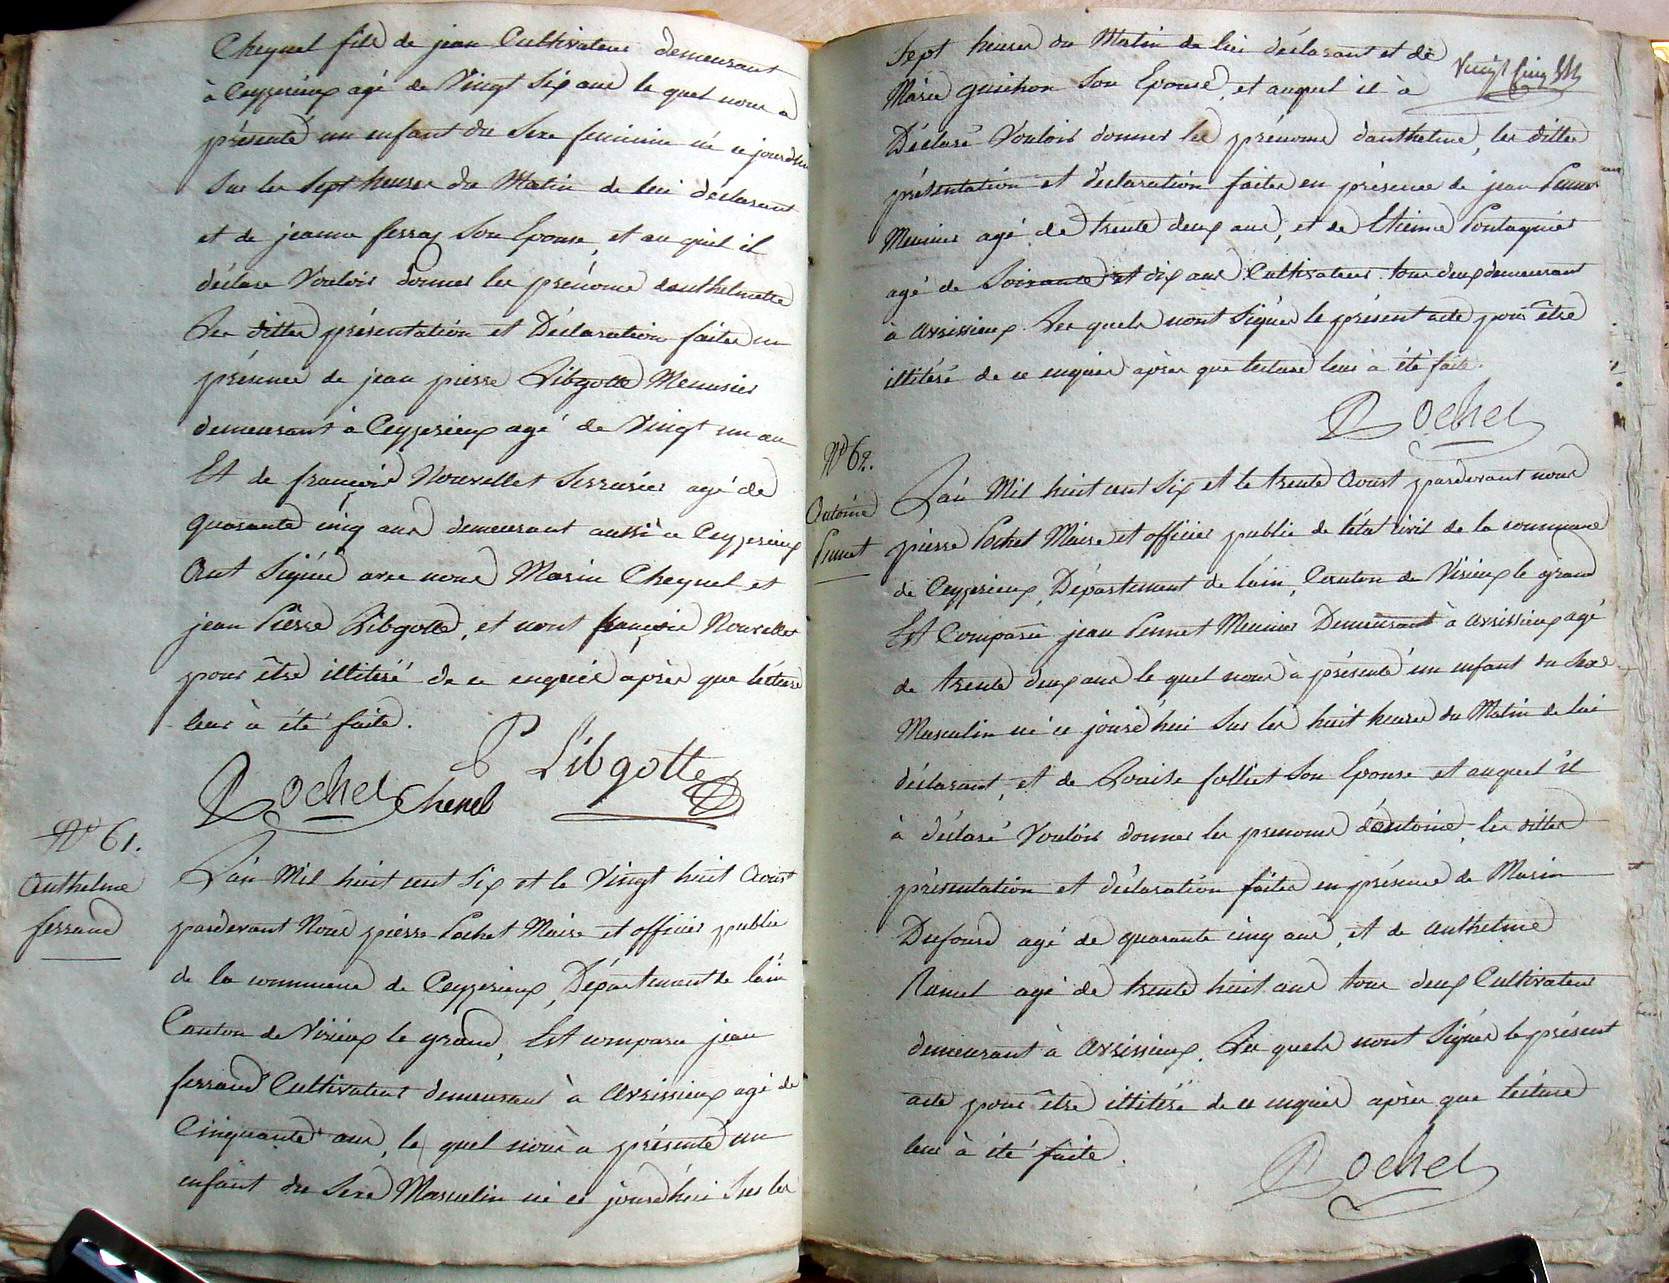 Cheynel fils de jean Cultivateur demeurant
à Ceyzerieux agé de Vingt Six ans le quel nous a
présenté un enfant du Sexe feminin né ce jourdhui
Sur les Sept heures du Matin de lui déclarant
et de jeanne ferraz Son Epouse, et au quel il
déclare Vouloir donner les prénoms danthelmette
Les dittes présentation et Déclaration faites en
présence de jean pierre Libgotte Menusier
demeurant à Ceyzerieux agé de Vingt un an
Et de françois Nouvellet Serrurier agé de
quarante cinq ans demeurant aussi à Ceyzerieux
Ont Signé avec nous Marin Cheynel et
jean Pierre Libgotte, et nont françois Nouvellet
pour être illitéré de ce enquis après que lecture
leur à été faite.
P Libgotte
Rochet Chenel
No 61.
Anthelme
ferrand
L'an Mil huit cent Six et le Vingt huit Aoust
pardevant Nous pierre Pochet Maire et officier public
de la commune de Ceyzerieux, Département de lain
Canton de Virieux le grand, Est comparu jean
ferrand Cultivateur demeurant à Avrissieux agé de
Cinquante ans, le quel nous à présenté un
enfant du Sexe Masculin né ce jourdhui Sur les
Sept heures du Matin de lui déclarant et de
Vingt Cinq
Marie guichon Son Epouse, et auquel il à
Déclaré Vouloir donner les prénoms danthelme, les dittes
présentation et déclaration faites en présence de jean Pernet
Meunier agé de trente deux ans, et de Etienne Pontagnier
agé de Soixante et dix ans Cultivateur tous deux demeurant
à Avrissieux. Les quels nont Signé le présent acte pour être
illitéré de ce enquis après que lecture leur à été faite.
Rochet
No 62.
Antoine
Pernet
L'an Mil huit cent Six et le trente Aoust pardevant nous
pierre Pochet Maire et officier public de létat civil de la commune
de Ceyzerieux, Département de lain, Canton de Virieux le grand
Est Comparu jean Pernet Meunier Demeurant à Avrissieux agé
de trente deux ans le quel nous à présenté un enfant du Sexe
Masculin né ce jourdhui Sur les huit heures du Matin de lui
déclarant, et de Louise folliet Son Epouse et auquel il
à déclaré Vouloir donner les prenoms dantoine, les dittes
présentation et déclaration faites en présence de Marin
Dufour agé de quarante cinq ans, et de anthelme
Ramel agé de trente huit ans tous deux Cultivateur
demeurant à Avrissieux. Les quels nont Signé le présent
acte pour être illitéré de ce enquis après que lecture
leur à été faite.
Rochet